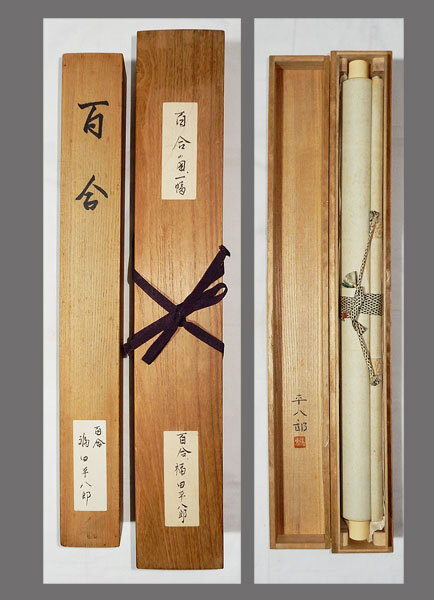 百合
百合
福田平八郎
百合
一幅
百合 福田平八郎
平八郎